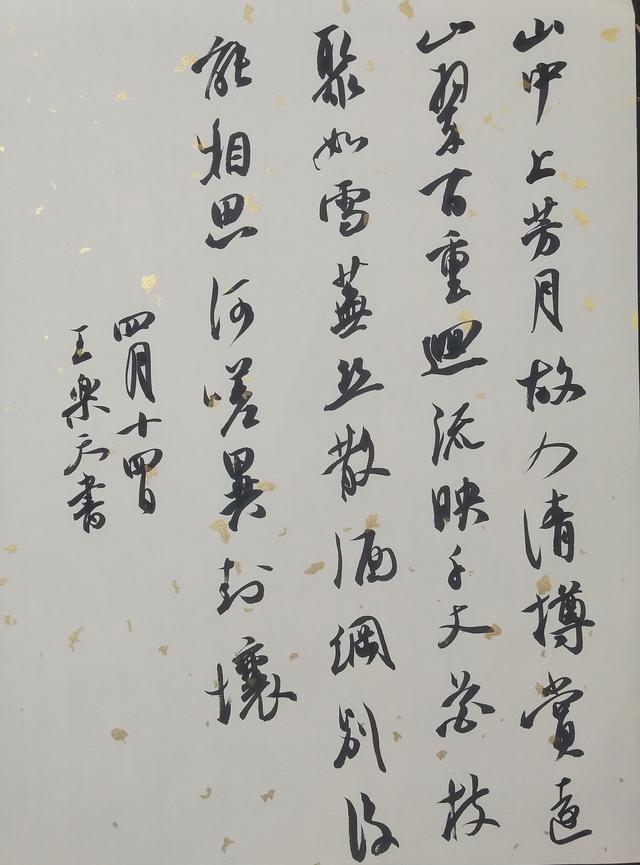 山中上芳月故人清樽賞遠
山翠百重迴流映千丈花枝
聚如雪蕪丝散猶網別後
能相思何嗟異封壤
四月十四日
王樂天書